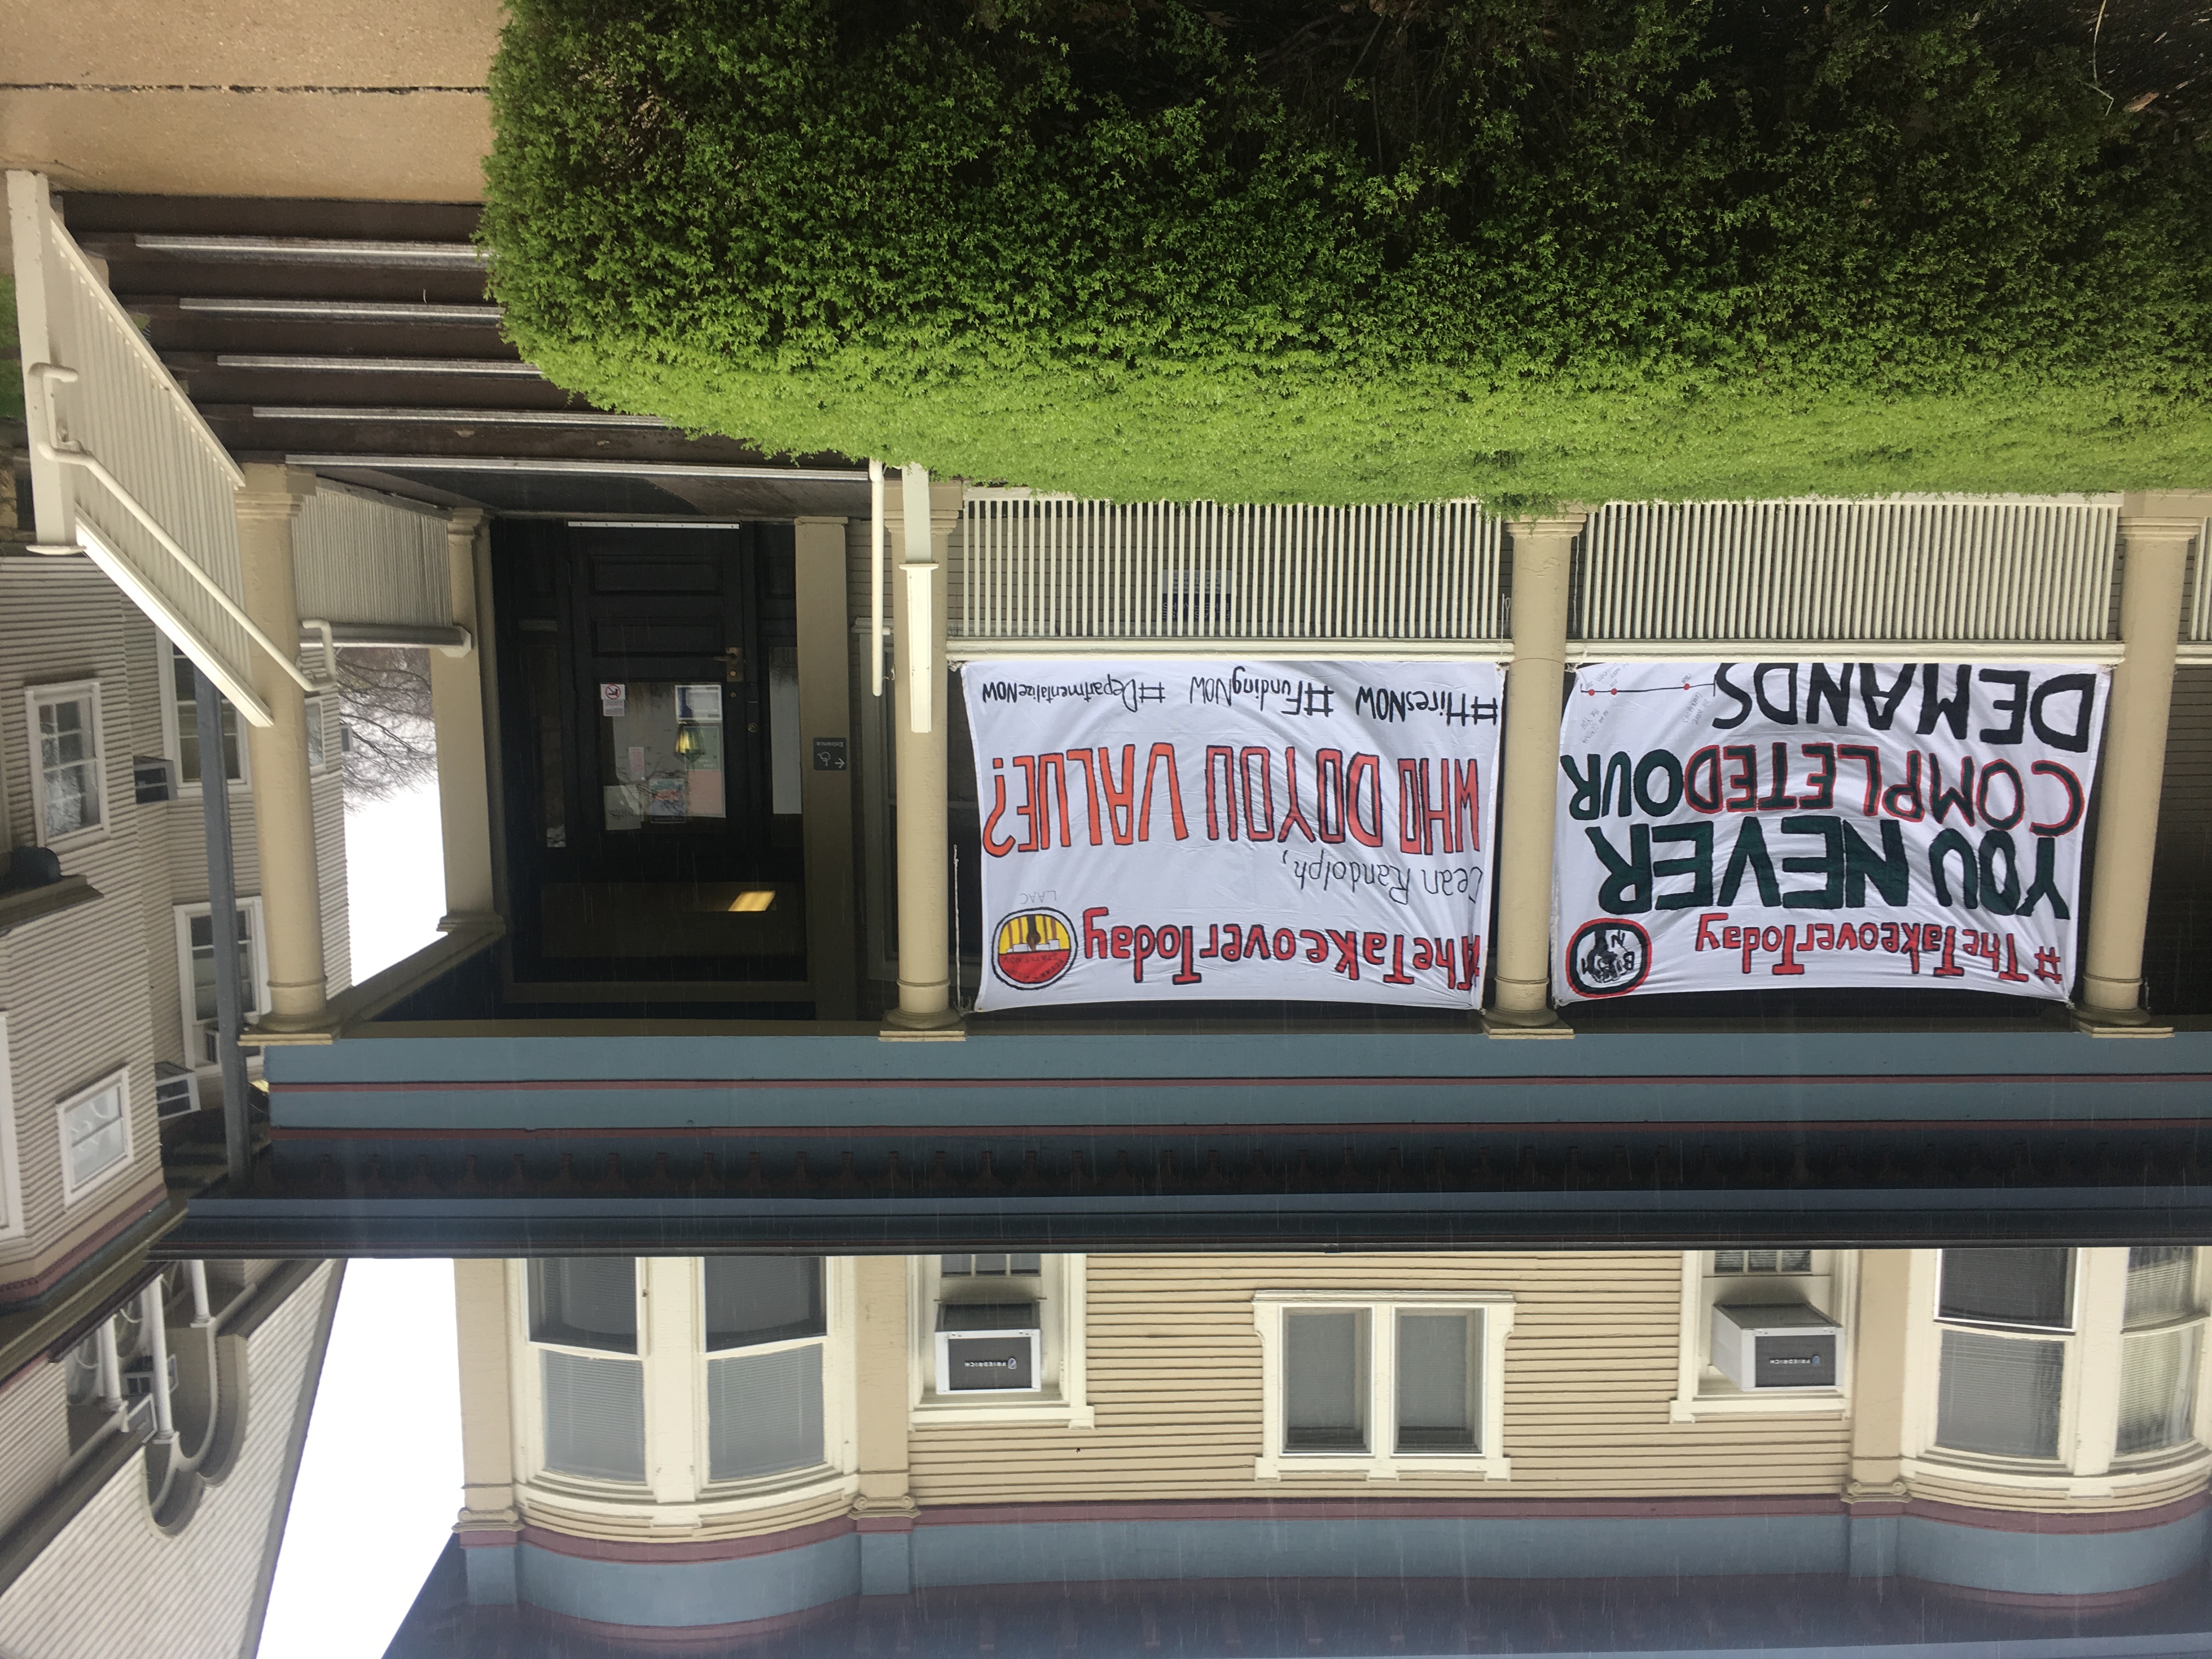 FRIEDRICH
FRIEDRICH
#TheTakeoverToday
B
M
IN
YOU NEVER
COMPLETED OUR
DEMANDS
#TheTakeoverToday
LAAC
Dean Randolph,
WHO DO YOU VALUE?
#HiresNOW #FundingNOW #DepartmentalizeNOW
Entrance